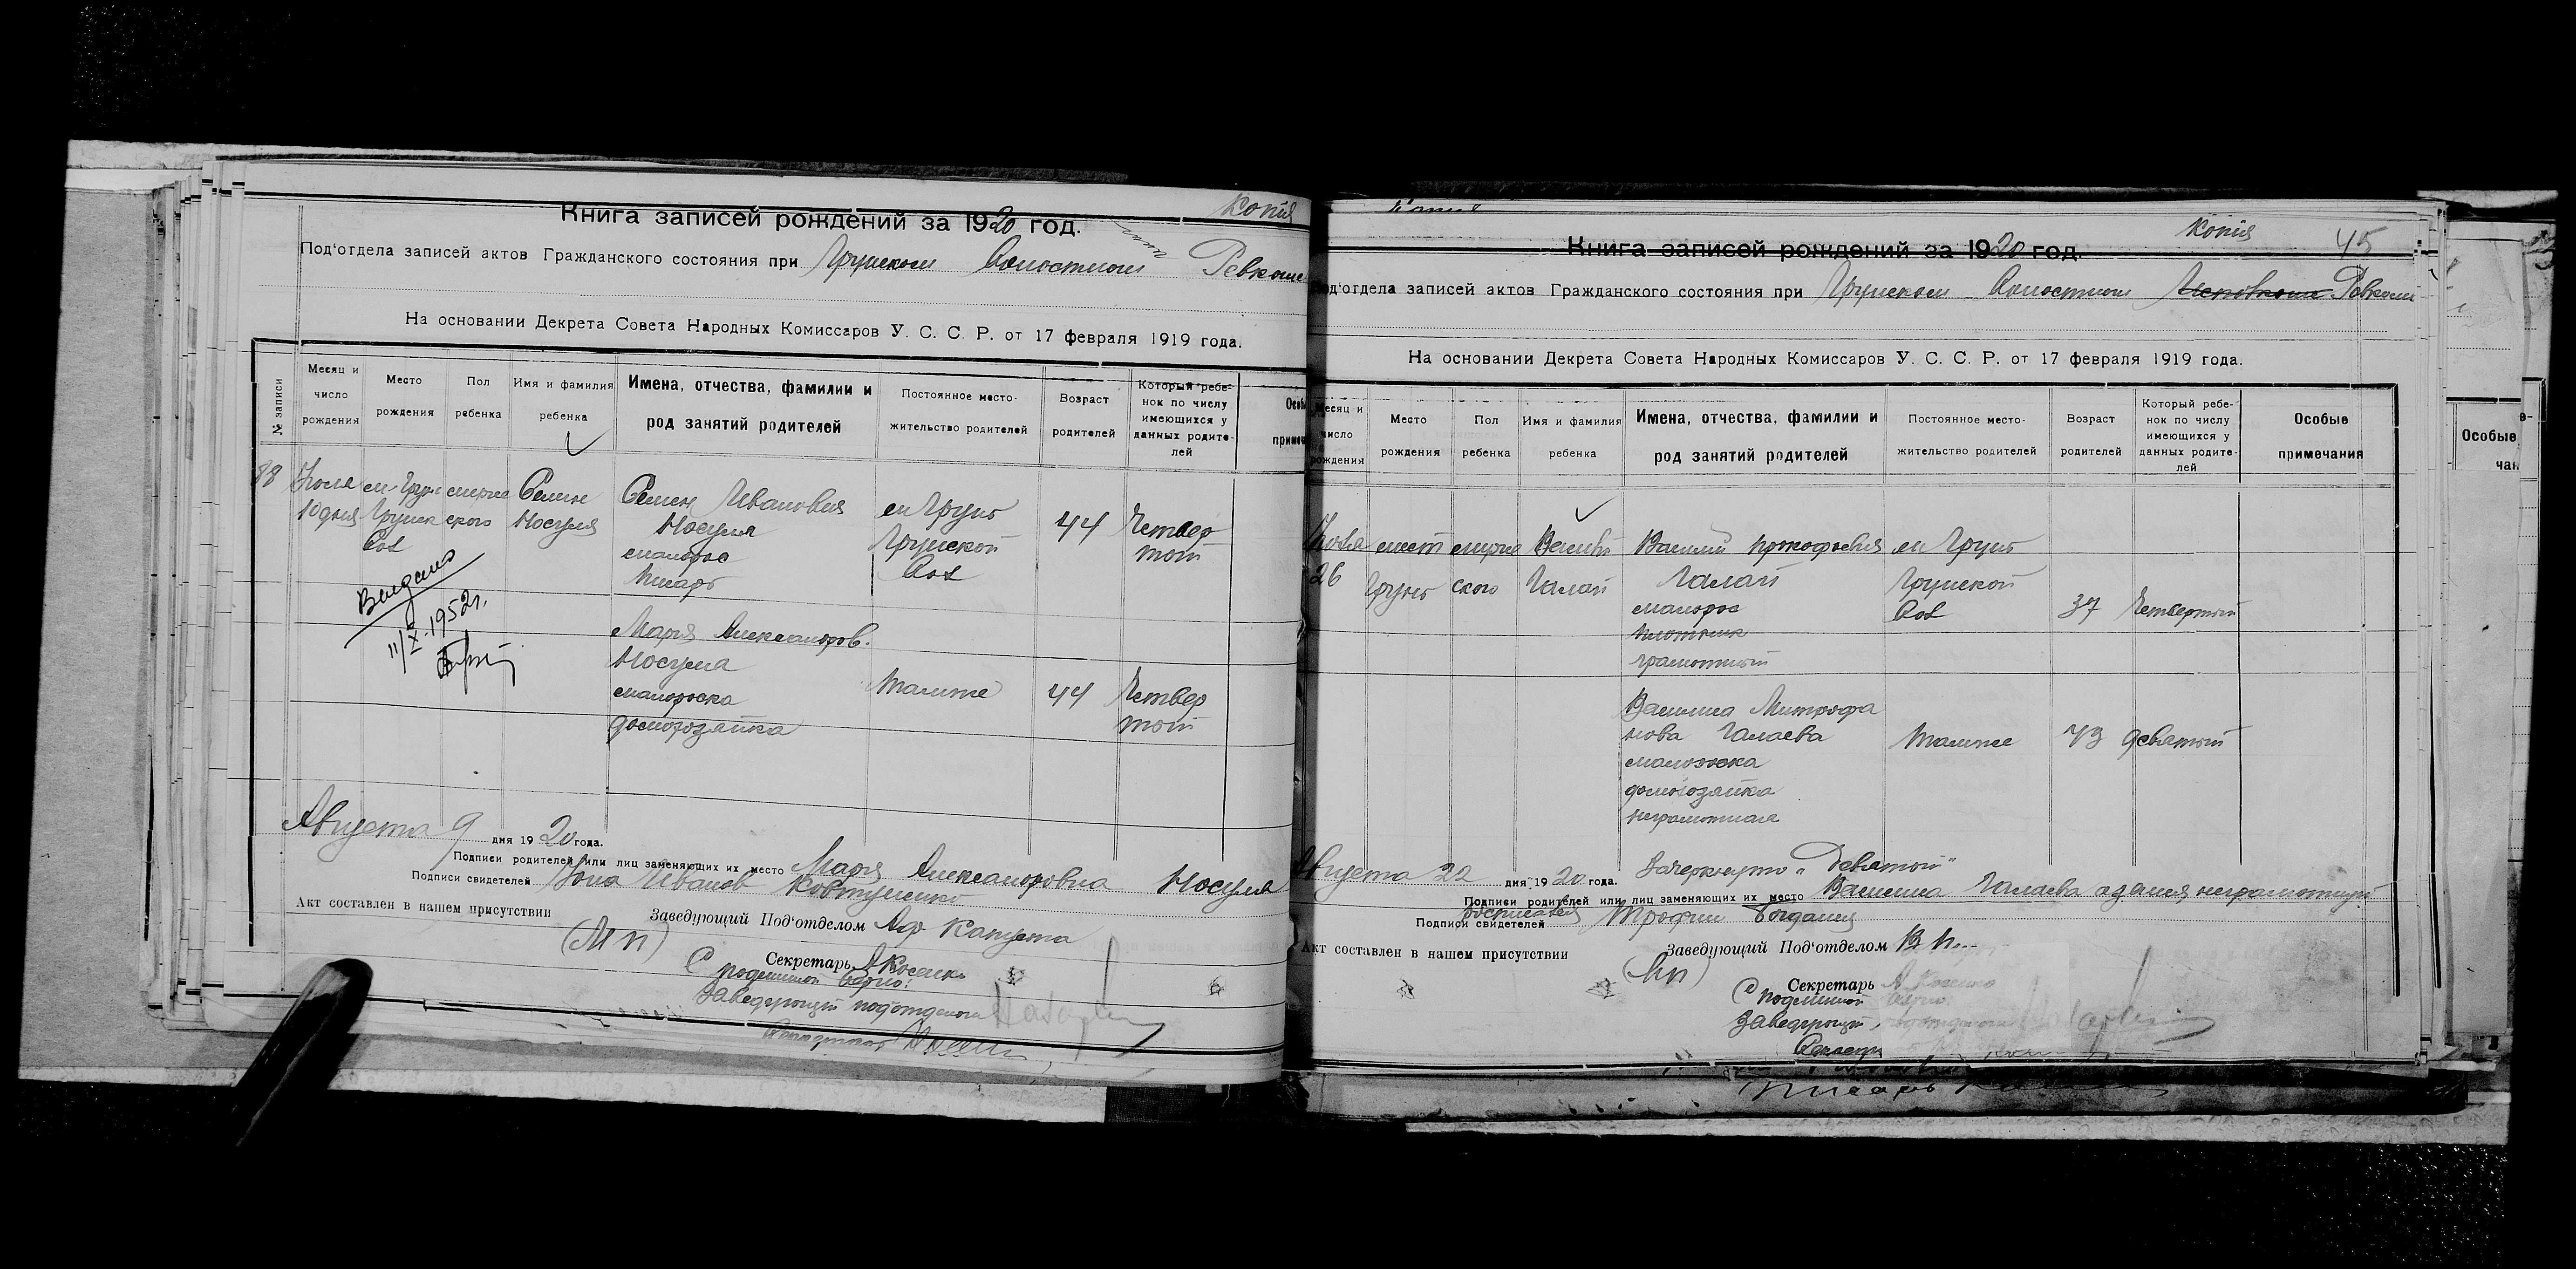 Копия
Книга записей рождений за 1920 год.
Под'отдела записей актов Гражданского состояния при Грунском Волостном Ревкоме
На основании Декрета Совета Народных Комиссаров У. С. С. Р. от 17 февраля 1919 года.
№ записи
Месяц и число рождения
Место рождения
Пол ребенка
Имя и фамилия ребенка
Имена, отчества, фамилии и род занятий родителей
Постоянное место-жительство родителей
Возраст родителей
Который ребе-нок по числу имеющихся у данных родите-лей
88
Июля 10 дня
м. Грунь Грунск Вол
мужеского
Семен Носуля
Семен Иванович
Носуля
малорос
писарь
м Грунь
Грунской
Вол
44
Четвер
той
Мария Александров.
Носуля
малороска
домохозяйка
Тамже
44
Четвер
той
Выдано
11/X-1952г.
Августа 9 дня 1920 года.
Подписи родителей или лиц заменяющих их место Мария Александровна Носуля
Подписи свидетелей Иона Иванов Ковтуненко
Акт составлен в нашем присутствии
Заведующий Под'отделом Аф Капуста
(М П)
Секретарь А Косенко
С подлинной верно:
Заведующий подотделом
Копия
45
Книга записей рождений за 1920 год.
Под'отдела записей актов Гражданского состояния при Грунском Волостном Исполкоме Ревкоме
На основании Декрета Совета Народных Комиссаров У. С. С. Р. от 17 февраля 1919 года.
Месяц и число рождения
Место рождения
Пол ребенка
Имя и фамилия ребенка
Имена, отчества, фамилии и род занятий родителей
Постоянное место-жительство родителей
Возраст родителей
Который ребе-нок по числу имеющихся у данных родите-лей
Особые примечания
Особые
Июля 26
мест Грунь
мужеского
Василий Галай
Василий Прокофьевич
Галай
малорос
плотник
грамотный
м Грунь
Грунской
Вол
37
Четвертый
Василиса Митрофа
нова Галаева
малороска
домохозяйка
неграмотная
Тамже
43
девятый
Августа 22 дня 1920 года.
Зачеркнуто „Девятый"
Подписи родителей или лиц заменяющих их место Василиса Галаева а за нея, неграмотную
росписался Трофим Богданец
Подписи свидетелей
Акт составлен в нашем присутствии
Заведующий Под'отделом
(М П)
Секретарь А Косенко
С подлинной верно
Заведующий подотделом